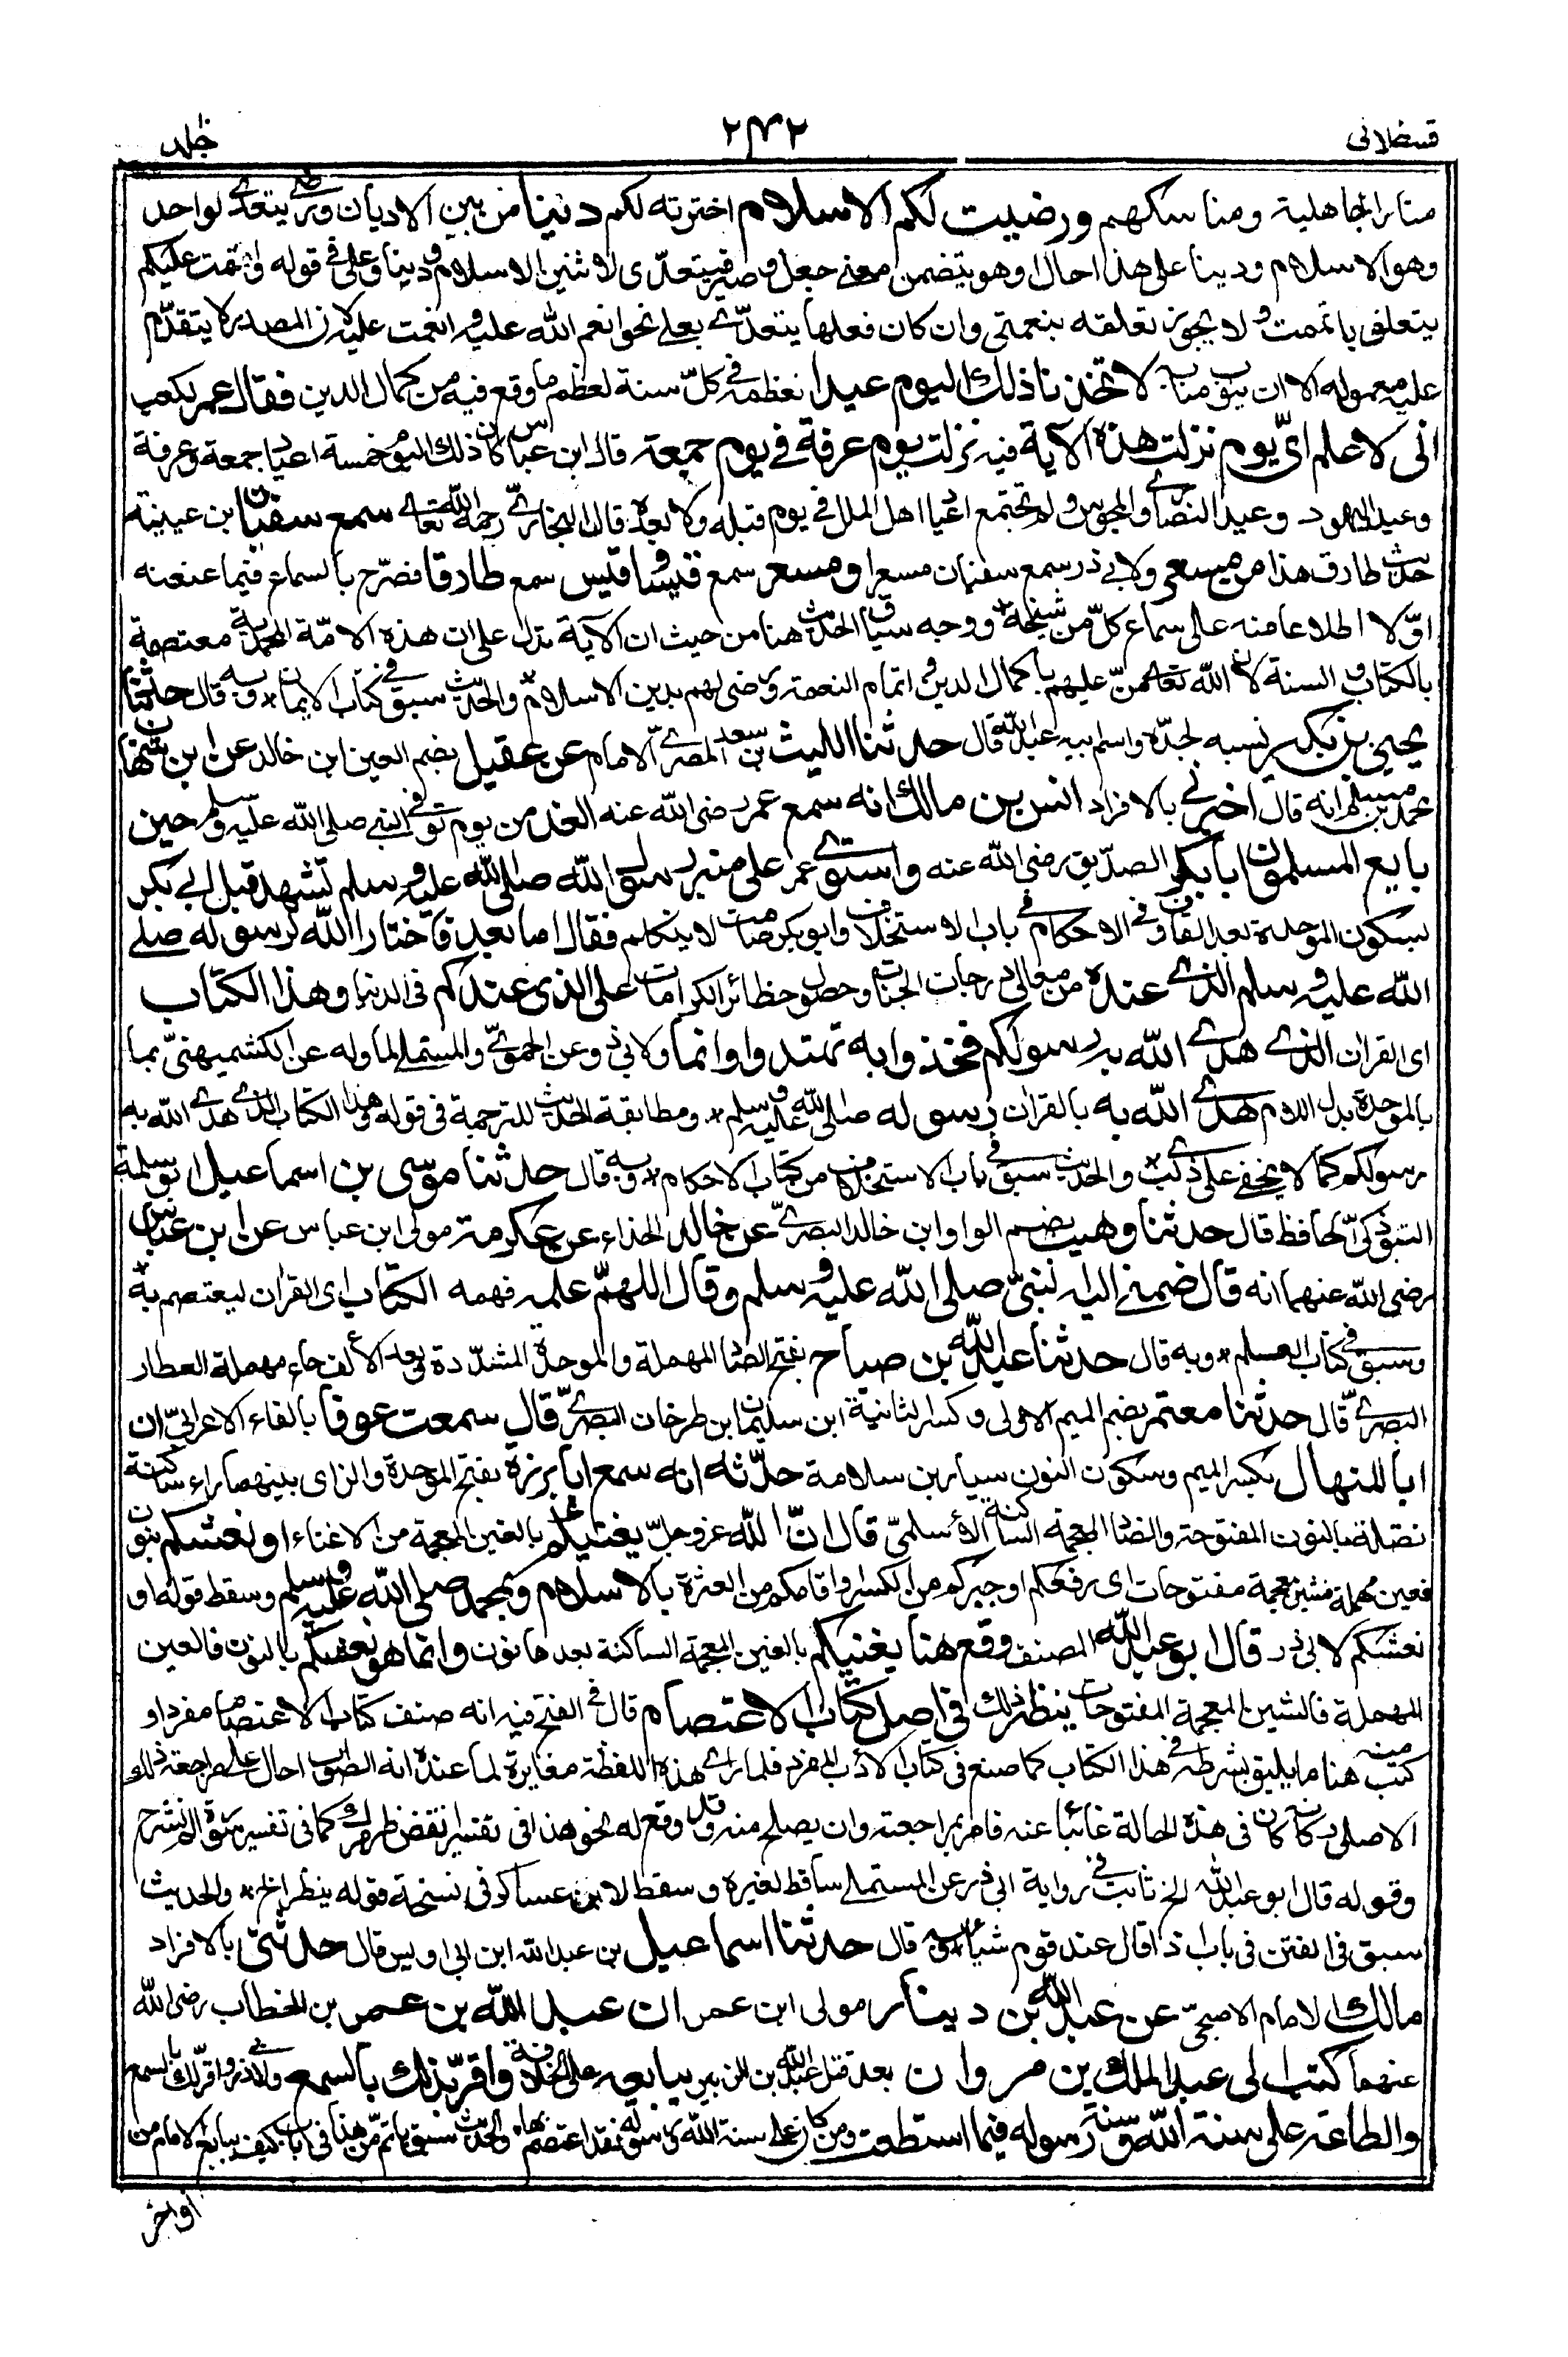 قسطلانی ۲۴۲ جلد
منار الجاهلية ومناسكهم ورضيت لكم الاسلام اخترته لكم دينا من بين الاديان ورضى يتعدى لواحد
وهو الاسلام ودينا على هذا حال او هو يتضمن معنى جعل وصير فيتعدّى لاثنين الاسلام ودينا وعلى فى قوله واتممت عليكم
يتعلق باتممت ولا يجوز تعلقه بنعمتى وان كان فعلها يتعدّى بعلى نحو انعم الله عليه وانعمت عليه لان المصدر لا يتقدّم
عليه معموله الا ان ينوب منابه لاتخذنا ذلك اليوم عيدا نعظمه فى كلّ سنة لعظم ما وقع فيه من كمال الدين فقال عمر لكعب
انى لاعلم اىّ يوم نزلت هذه الآية فيه نزلت يوم عرفة فى يوم جمعة قال ابن عباس كان ذلك اليوم خمسة اعياد جمعة وعرفة
وعيد اليهود وعيد النصارى والمجوس ولم تجتمع اعياد اهل الملل فى يوم قبله ولا بعده قال البخارىّ رحمه الله تعالى سمع سفيان ابن عيينة
حديث طارق هذا من مسعر ولابى ذر سمع سفيان مسعرا ومسعر سمع قيسا وقيس سمع طارقا فصرّح بالسماع فيما عنعنه
اوّلا اطلاعا منه على سماع كلّ من شيخه* ووجه سياق الحديث هنا من حيث ان الآية تدل على ان هذه الامّة المحمدية معتصمة
بالكتاب والسنة لان الله تعالى منّ عليهم باكمال الدين واتمام النعمة ورضى لهم بدين الاسلام* والحديث سبق فى كتاب الايمان* وبه قال حدثنا
يحيى بن بكير نسبه لجدّه واسم ابيه عبد الله قال حدثنا الليث بن سعد المصرىّ الامام عن عقيل بضم العين ابن خالد عن ابن شهاب
محمد بن مسلم انه قال اخبرنى بالافراد انس بن مالك انه سمع عمر رضى الله عنه الغد من يوم توفى النبى صلى الله عليه وسلم حين
بايع المسلمون ابا بكر الصدّيق رضى الله عنه واستوى عمر على منبر رسول الله صلى الله عليه وسلم تشهد قبل ابى بكر
بسكون الموحدة بعد القاف وفى الاحكام فى باب الاستخلاف وابو بكر صامت لا يتكلم فقال اما بعد فاختار الله لرسوله صلى
الله عليه وسلم الذى عنده من معالى درجات الجنات وحصول حظائر الكرامات على الذى عندكم فى الدنيا وهذا الكتاب
اى القران الذى هدى الله به رسولكم فخذوا به تهتدوا وانما ولابى ذر عن الحموىّ والمستملى لما وله عن الكشميهنىّ بما
بالموحدة بدل اللام هدى الله به بالقران رسوله صلى الله عليه وسلم* ومطابقة الحديث للترجمة فى قوله وهذا الكتاب الذى هدى الله به
رسولكم كما لا يخفى على ذى لب* والحديث سبق فى باب الاستخلاف من كتاب الاحكام* وبه قال حدثنا موسى بن اسماعيل ابو سلمة
التبوذكىّ الحافظ قال حدثنا وهيب بضم الواو ابن خالد البصرىّ عن خالد الحذاء عن عكرمة مولى ابن عباس عن ابن عباس
رضى الله عنهما انه قال ضمنى اليه النبىّ صلى الله عليه وسلم وقال اللهمّ علمه فهمه الكتاب اى القران ليعتصم به*
وسبق فى كتاب العلم* وبه قال حدثنا عبد الله بن صباح بفتح الصاد المهملة والموحدة المشدّدة وبعد الألف حاء مهملة العطار
البصرىّ قال حدثنا معتمر بضم الميم الاولى وكسر الثانية ابن سليمان ابن طرخان البصرىّ قال سمعت عوفا بالفاء الاعرابىّ ان
ابا المنهال بكسر الميم وسكون النون سيار بن سلامة حدّثه انه سمع ابا برزة بفتح الموحدة والزاى بينهما راء ساكنة
نضلة بالنون المفتوحة والضاد المعجمة الساكنة الأسلمىّ قال انّ الله عز وجل يغنيكم بالغين المعجمة من الاغناء او نعشكم بنون
فعين مهملة فشين معجمة مفتوحات اى رفعكم او جبركم من الكسر او اقامكم من العثرة بالاسلام وبمحمد صلى الله عليه وسلم وسقط قوله او
نعشكم لابى ذر قال ابو عبد الله المصنف وقع هنا يغنيكم بالغين المعجمة الساكنة بعدها نون وانما هو نعشكم بالنون فالعين
المهملة فالشين المعجمة المفتوحات ينظر ذلك فى اصل كتاب الاعتصام قال فى الفتح فيه انه صنف كتاب الاعتصام مفردا و
كتب منه هنا ما يليق بشرطه فى هذا الكتاب كما صنع فى كتاب الادب المفرد فلما راى هذه اللفظة مغايرة لما عنده انه الصواب احال على مراجعة ذلك
الاصل وكانه كان فى هذه الحالة غائبا عنه فامر بمراجعته وان يصلح منه وقد وقع له نحو هذا فى تفسير انقض ظهرك كما فى تفسير سورة الم نشرح
وقوله قال ابو عبد الله الخ ثابت فى رواية ابى ذر عن المستملى ساقط لغيره وسقط لابن عساكر فى نسخة قوله ينظر الخ* والحديث
سبق فى الفتن فى باب اذا قال عند قوم شيأ* وبه قال حدثنا اسماعيل بن عبد الله ابن ابى اويس قال حدثنى بالافراد
مالك الامام الاصبحىّ عن عبد الله بن دينار مولى ابن عمر ان عبد الله بن عمر بن الخطاب رضى الله
عنهما كتب الى عبد الملك بن مروان بعد قتل عبد الله بن الزبير يبايعه على الخلافة واقرّ بذلك بالسمع ولابى ذر واقرّ لك بالسمع
والطاعة على سنة الله وسنة رسوله فيما استطعت ومن كان على سنة الله ورسوله فقد اعتصم بهما* والحديث سبق باتم من هذا فى باب كيف يبايع الامام من
اواخر